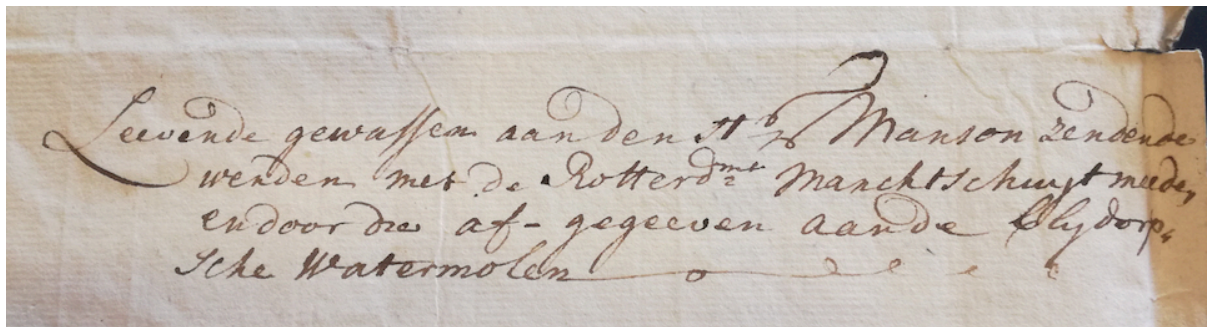 Leevende gewassen aan den Hr Manson zendende
werden met de Rotterdmt Manchtschuyt meede,
en door die af- gegeeven aan de Blijdorp,
sche Watermolen